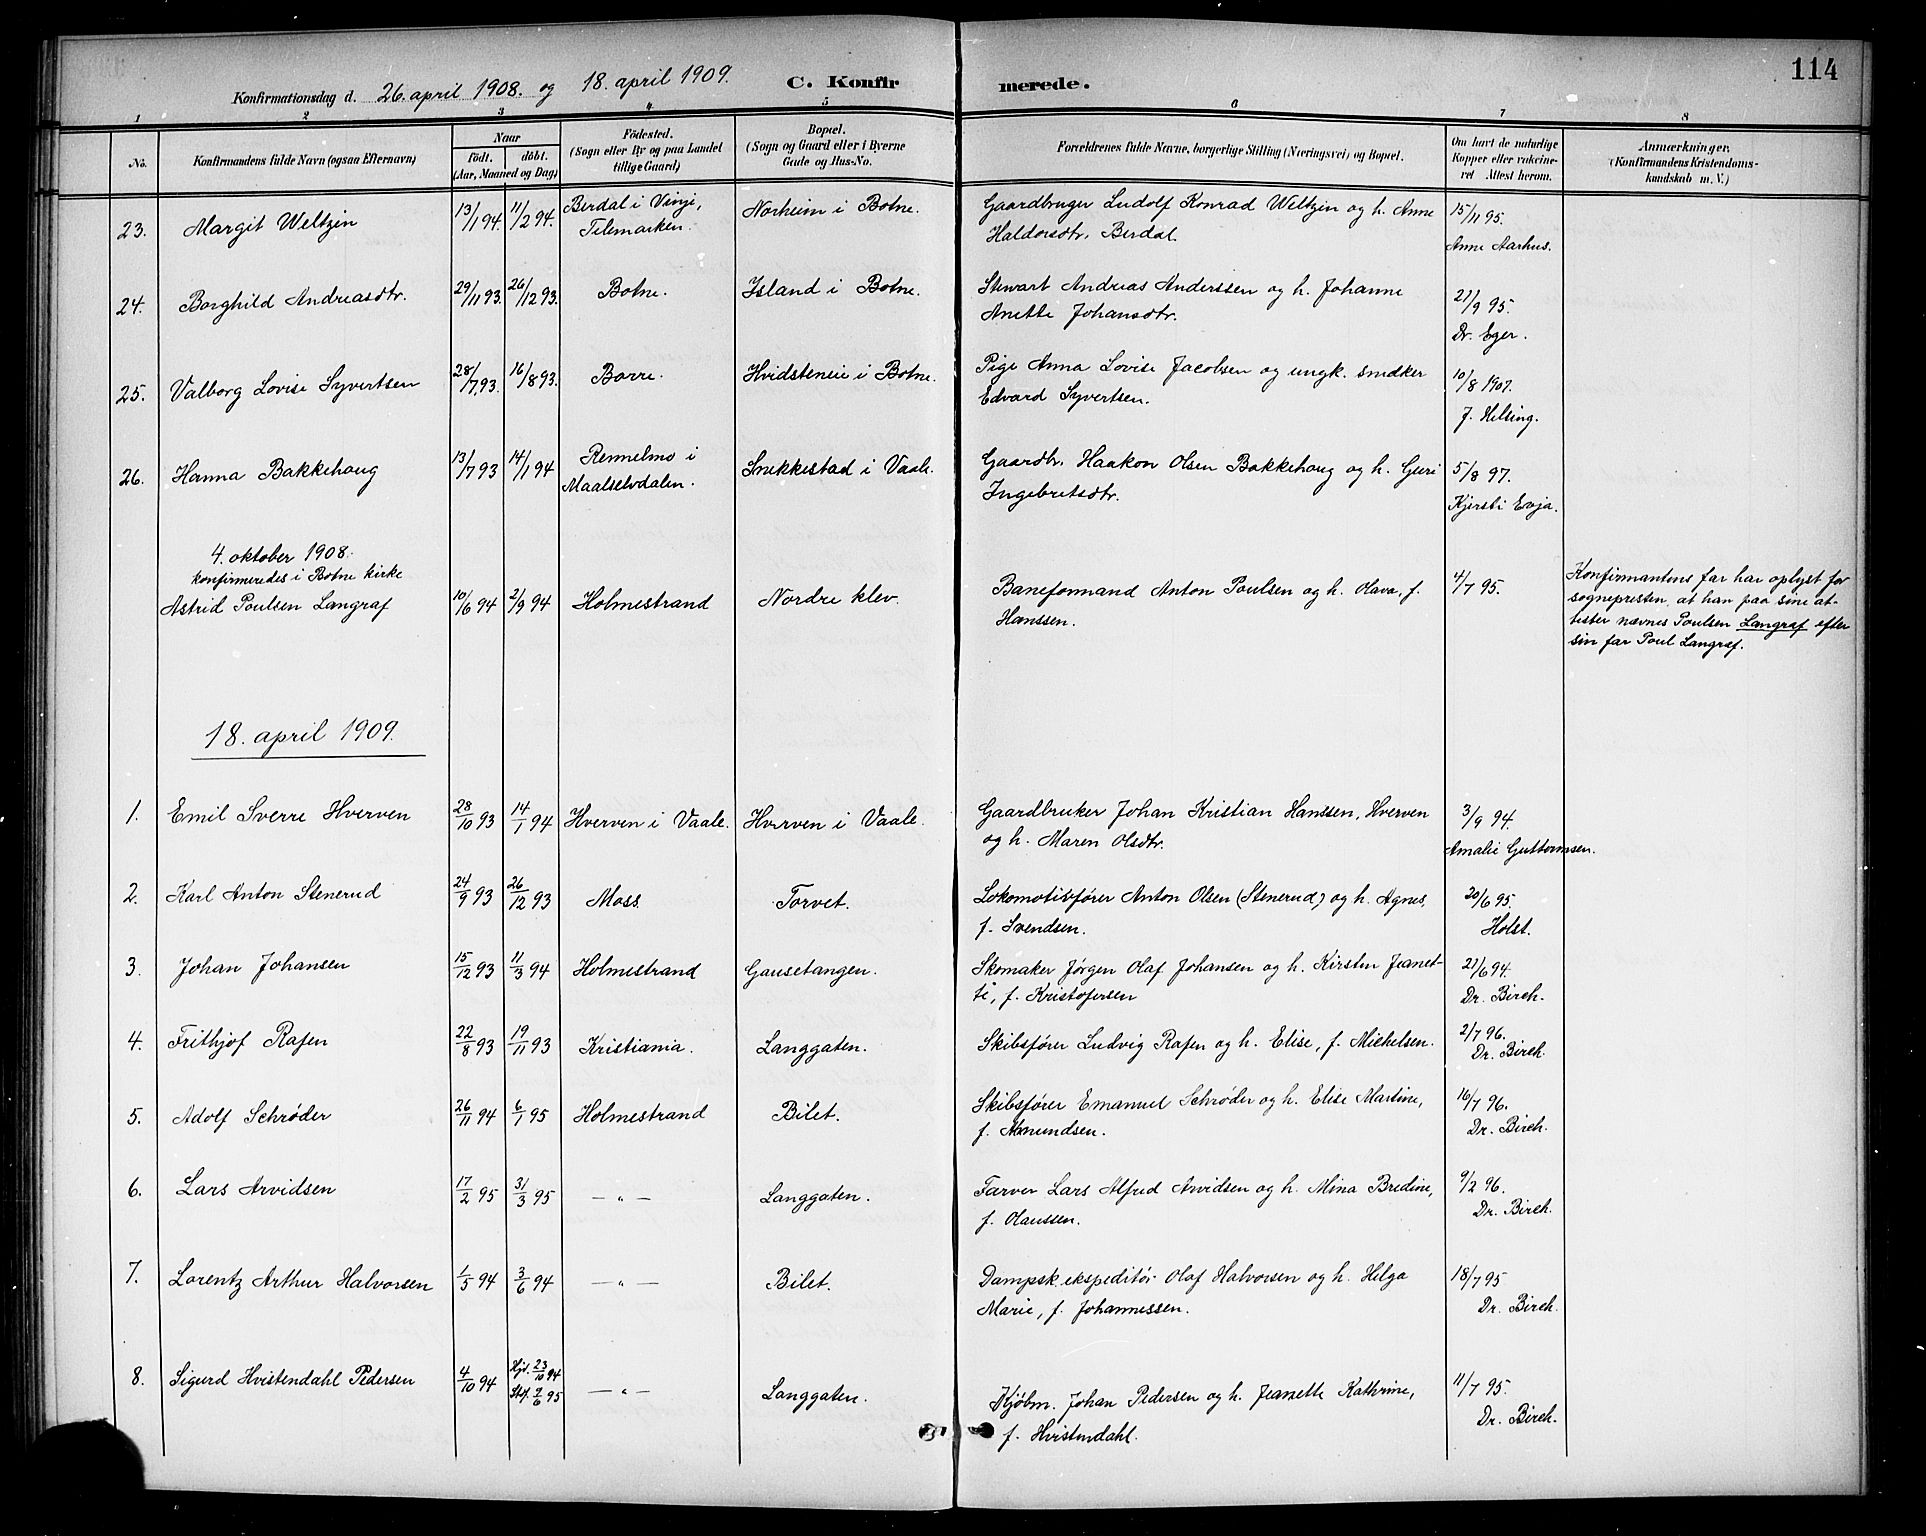 114
Konfirmationsdag d. 26. april 1908. og 18. april 1909. C. Konfirmerede.
1 2 3 4 5 6 7 8
No. Konfirmandens fulde Navn (ogsaa Efternavn) Naar födt. döbt. (Aar, Maaned og Dag) Födested. (Sogn eller By og paa Landet tillige Gaard) Bopæl. (Sogn og Gaard eller i Byerne Gade og Hus-No. Forældrenes fulde Navne, borgerlige Stilling (Næringsvei) og Bopæl. Om havt de naturlige Kopper eller vaccineret Attest herom. Anmærkninger. (Konfirmandens Kristendomskundskab m. V.)
23. Margit Weltzin 13/1 94. 11/2 94. Berdal i Vinje, Telemarken. Norheim i Botne. Gaardbruger Ludolf Konrad Weltzin og h. Anne Haldorsdtr. Berdal. 15/11 95. Anne Aarhus.
24. Borghild Andreasdtr. 29/11 93. 26/12 93. Botne. Island i Botne. Stewart Andreas Anderssen og h. Johanne Anette Johansdtr. 21/9 95. Dr. Eger.
25. Valborg Lovise Syvertsen 28/7 93. 16/8 93. Borre. Hvidsteneie i Botne. Pige Anna Lovise Jacobsen og ungk. snedker Edvard Syvertsen. 10/8 1907. J. Helsing.
26. Hanna Bakkehaug 13/7 93 14/1 94 Rennelmo i Maalselvdalen. Snekkestad i Vaale. Gaardbr. Haakon Olsen Bakkehaug og h. Guri Ingebretsdtr. 5/8 97. Kjersti Evja.
4. oktober 1908.
konfirmeredes i Botne kirke
Astrid Poulsen Langraf 10/6 94 2/9 94 Holmestrand Nordre klev. Baneformand Anton Poulsen og h. Olava, f. Hanssen. 4/7 95. Konfirmantens far har oplyst for sognepresten, at han paa sine attester nævnes Poulsen Langraf efter sin far Poul Langraf.
18. april 1909.
1. Emil Sverre Hverven 28/10 93 14/1 94 Hverven i Vaale. Hverven i Vaale. Gaardbruker Johan Kristian Hanssen, Hverven og h. Maren Olsdtr. 3/9 94. Amalie Guttormsen.
2. Karl Anton Stenerud 24/9 93 26/12 93 Moss. Torvet. Lokomotivfører Anton Olsen (Stenerud) og h. Agnes, f. Svendsen. 20/6 95. Holst.
3. Johan Johansen 15/12 93 11/3 94 Holmestrand Gausetangen. Skomaker Jørgen Olaf Johansen og h. Kirsten Jeanette, f. Kristofersen 21/6 94. Dr. Birch.
4. Frithjof Rafen 22/8 93 19/11 93 Kristiania. Langgaten. Skibsfører Ludvig Rafen og h. Elise, f. Michelsen. 2/7 96. Dr. Birch.
5. Adolf Schrøder 26/11 94 6/1 95 Holmestrand Bilet. Skibsfører Emanuel Schrøder og h. Elise Martine, f. Amundsen. 16/7 96. Dr. Birch.
6. Lars Arvidsen 17/2 95 31/3 95 — „ — Langgaten. Farver Lars Alfred Arvidsen og h. Mina Bredine, f. Olaussen. 9/2 96. Dr. Birch.
7. Lorentz Arthur Halvorsen 1/5 94 3/6 94 — „ — Bilet. Dampsk.ekspeditør Olaf Halvorsen og h. Helga Marie, f. Johannessen. 18/7 95 Dr. Birch.
8. Sigurd Hvistendahl Pedersen 4/10 94 Hjd. 23/10 94 Stf. 2/6 95 — „ — Langgaten. Kjøbm. Johan Pedersen og h. Jeanette Kathrine, f. Hvistendahl. 11/7 95. Dr. Birch.